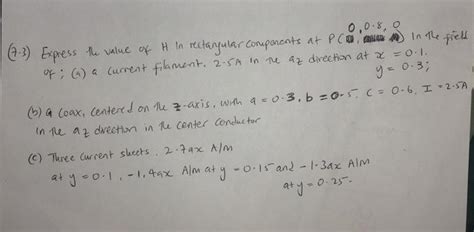 0, 0.8, 0
(7.3) Express the value of H in rectangular components at P( ) in the field
of ; (a) a current filament, 2.5A in the az direction at x = 0.1.
y = 0.3;
(b) a coax, centered on the z-axis, with a = 0.3, b = 0.5, C = 0.6, I = 2.5A
in the az direction in the center conductor
(c) Three current sheets, 2.7ax A/m
at y = 0.1, -1.4ax A/m at y = 0.15 and -1.3ax A/m
at y = 0.25.